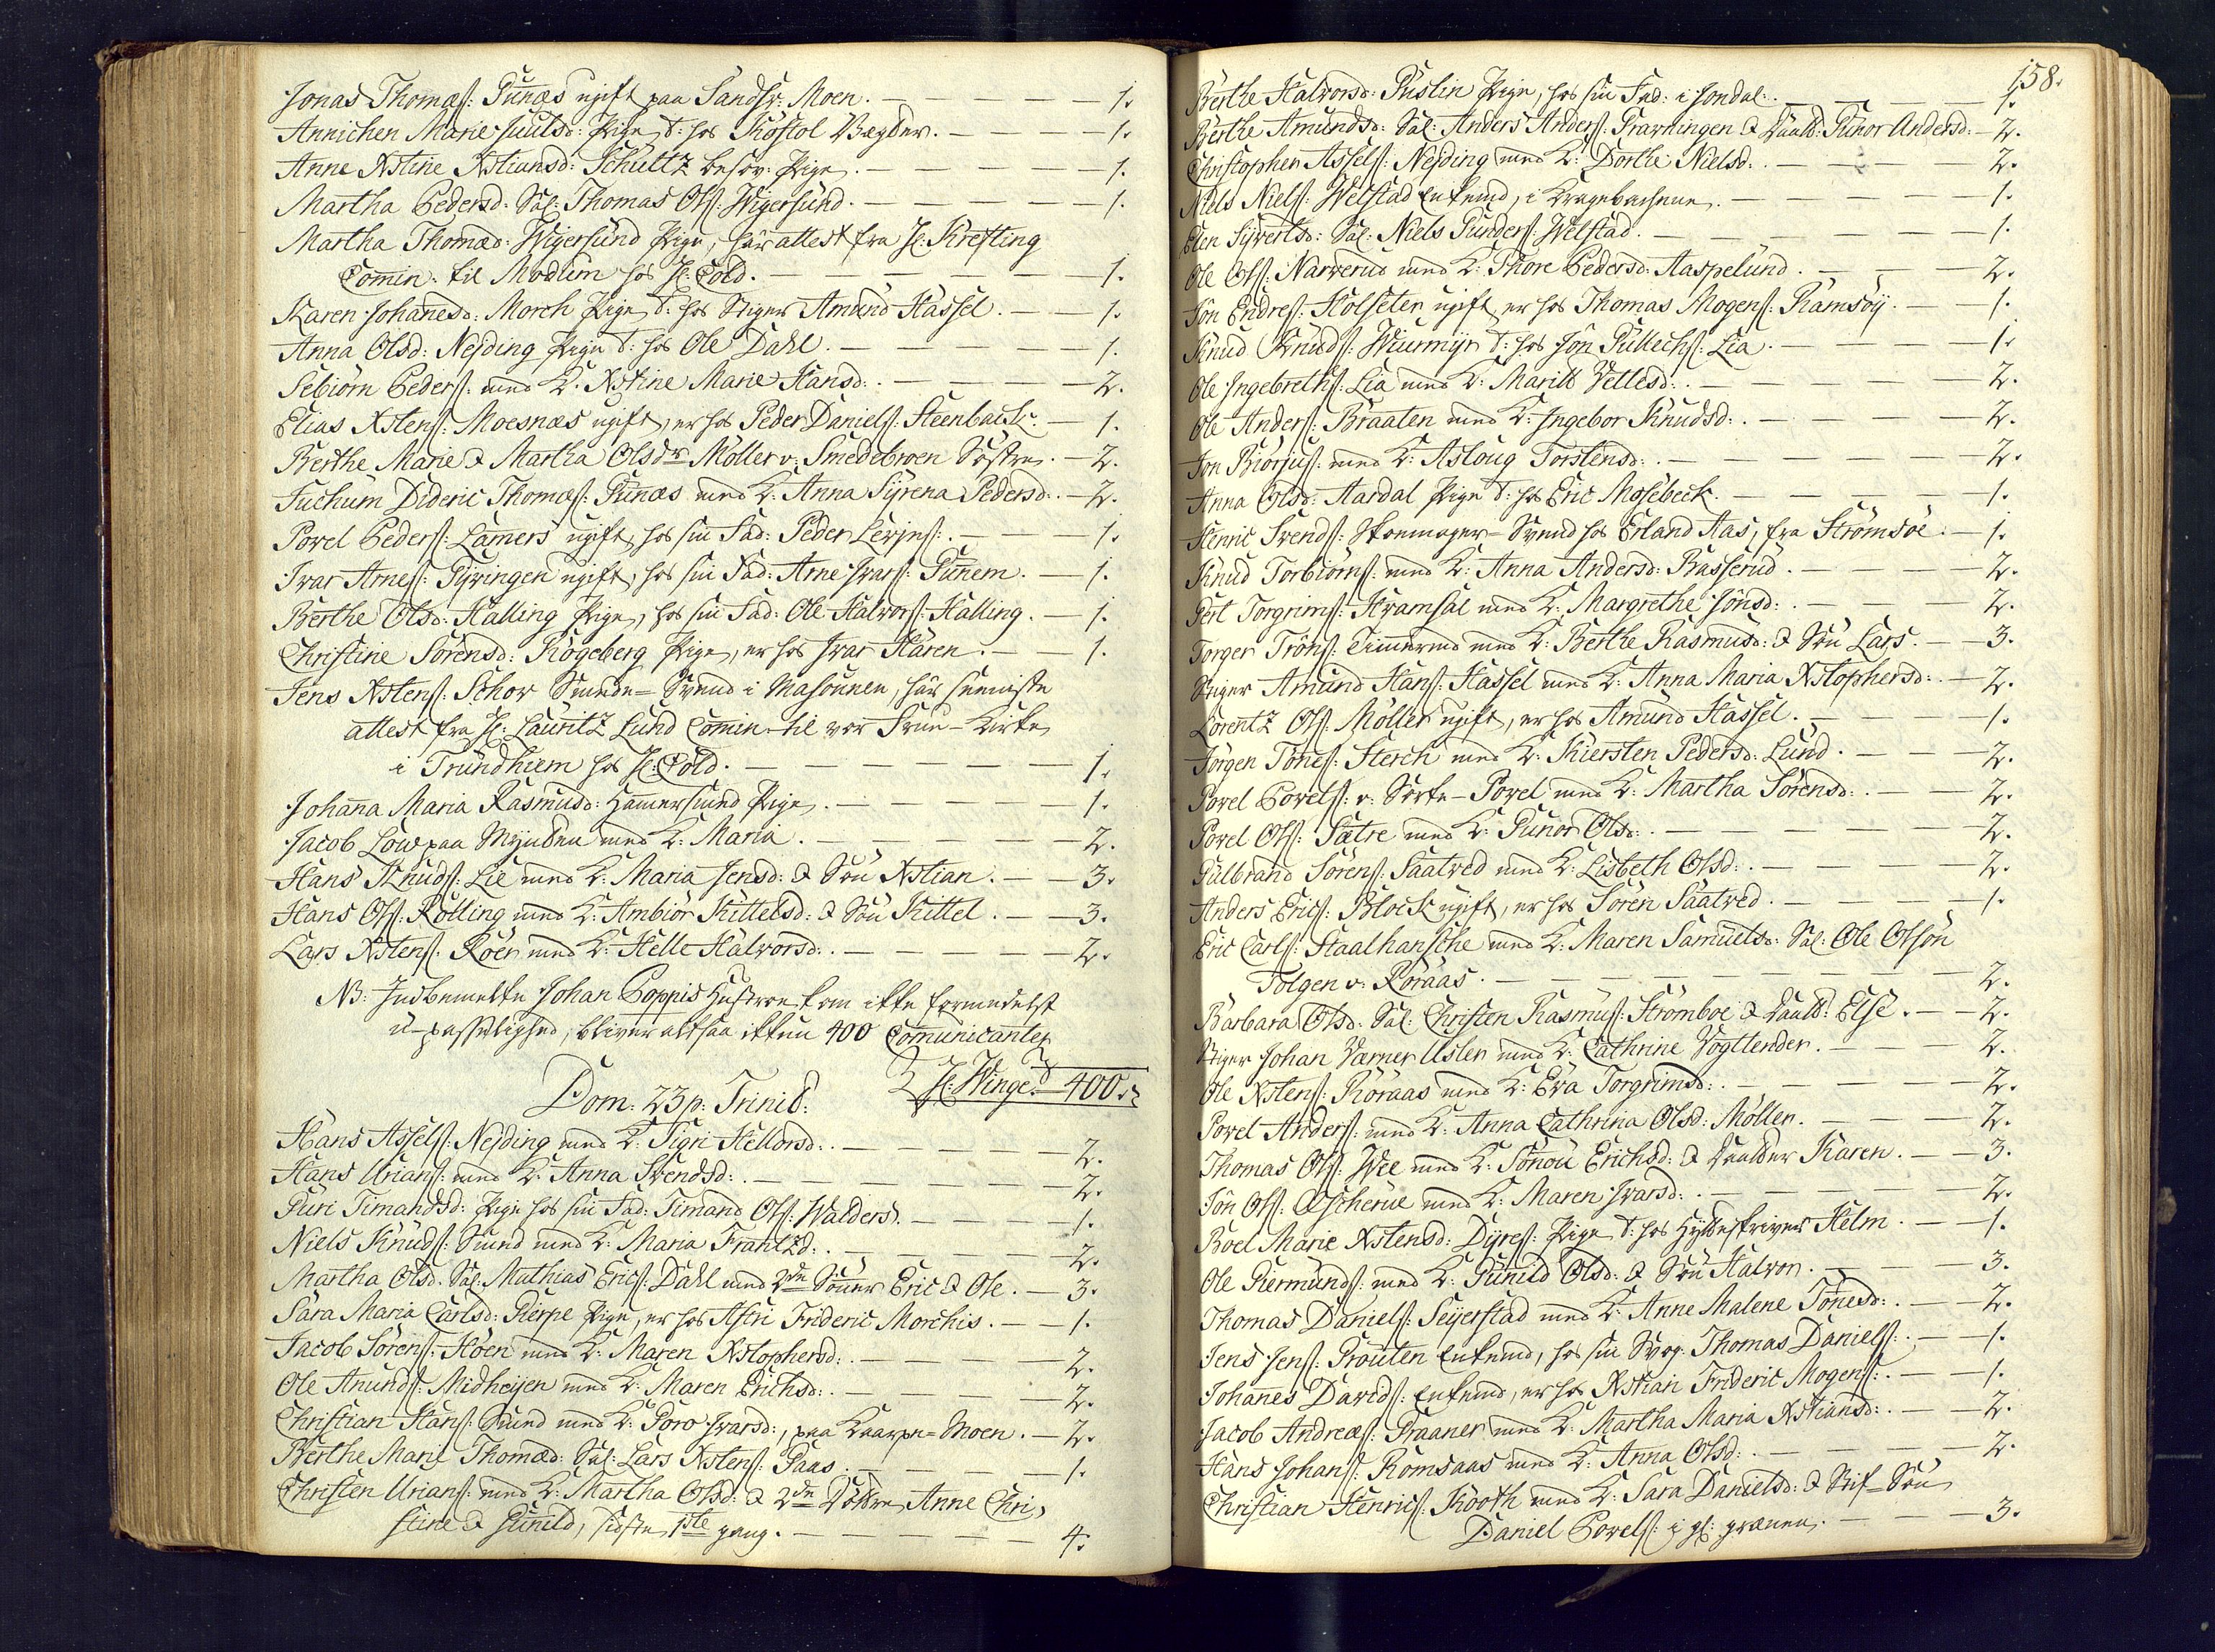 Jonas Thomæs: Gunæs ugift paa Sandsv: Moen. — 1.
Annichen Marie Juulsd: Pige t: hos Kostol Vægter. — 1.
Anne Xstine Xstiansd: Schultz besov: Pige. — 1.
Martha Pedersd: Sal: Thomas Ols: Wigersund. — 1.
Martha Thomæd: Wigersund Pige, har attest fra Hr: Krefting
Comin: til Modum hos Hr: Cold. — 1.
Karen Johanesd: Morch Pige t: hos Stiger Amund Hassel. — 1.
Anna Olsd: Nejding Pige t: hos Ole Dahl. — 1.
Sebiörn Peders: med K: Xstine Marie Hansd: — 2.
Elias Xstens: Moesnæs ugift, er hos Peder Daniels: Steenbæck. — 1.
Berthe Marie & Martha Olsdr Möller v: Smedebroen Söstre. — 2.
Juchum Dideric Thomæs: Gunæs med K: Anna Syrena Pedersd: — 2.
Povel Peders: Lamers ugift, hos sin Fad: Peder Levins: — 1.
Ivar Arnes: Tyvingen ugift, hos sin Fad: Arne Ivars: Gunem. — 1.
Berthe Olsd: Halling Pige, hos sin Fad: Ole Halvors: Halling. — 1.
Christine Sörensd: Kogeberg Pige, er hos Ivar Haren. — 1.
Jens Xstens: Schov Smede-Svend i Masovnen, har seeniste
attest fra Hr: Lauritz Lund Comin: til vor Frue-Kirke
i Trundhiem hos Hr: Cold. — 1.
Johanna Maria Rasmusd: Hammersmed Pige. — 1.
Jacob Löw paa Mynten med K: Maria. — 2.
Hans Knuds: Lie med K: Maria Jensd: & Sön Xstian. — 3.
Hans Ols: Rolling med K: Ambiör Kittelsd: & Sön Kittel. — 3.
Lars Xstens: Roer med K: Helle Halvorsd: — 2.
NB: Indbemelte Johan Poppis Hustroe kom ikke formedelst
u-passelighed, bliver altsaa ikkun 400 Comunicanter
Hr: Winge. — 400.
Dom: 23 p: Trinit:
Hans Assels: Nejding med K: Sigri Hellorsd: — 2.
Hans Urians: med K: Anna Svendsd: — 2.
Guri Timandsd: Pige hos sin Fad: Timand Ols: Walders. — 1.
Niels Knuds: Smed med K: Maria Frantzd: — 2.
Martha Olsd: Sal: Mathias Erics: Dahl med 2de Sönner Eric & Ole. — 3.
Sara Maria Carlsd: Gierpe Pige, er hos Astri Frideric Morchis. — 1.
Jacob Sörens: Höen med K: Maren Xstophersd: — 2.
Ole Anunds: Midheijen med K: Maren Erichsd: — 2.
Christian Hans: Smed med K: Goro Ivarsd:, paa Kaarpe-Moen. — 2.
Berthe Marie Thomæd: Sal: Lars Xstens: Paas. — 1.
Christen Urians: med K: Martha Olsd: & 2de Döttre, Anne Chri-
stine & Gunild, sidste 1ste gang. — 4.
158.
Berthe Halvorsd: Puslin Pige, hos sin Fad: i Jondal. — 1.
Berthe Amundsd: Sal: Anders Anders: Pravningen & Daatt: Gunor Andersd: — 2.
Christopher Assels: Nejding med K: Dorthe Nielsd: — 2.
Niels Niels: Welstad Enkemd, i Kragebachene. — 1.
Elen Syvertsd: Sal: Niels Gunders: Welstad. — 1.
Ole Ols: Narverud med K: Thore Pedersd: Aaspelund. — 2.
Jön Endres: Holseter ugift, er hos Thomas Mogens: Ramsöy. — 1.
Knud Knuds: Wiurmyr t: hos Jön Gullechs: Lia. — 1.
Ole Ingebreths: Lia med K: Maritt Vettesd: — 2.
Ole Anders: Braaten med K: Ingebor Knudsd: — 2.
Jon Biörjus: med K: Astoug Torstensd: — 2.
Anna Olsd: Aardal Pige t: hos Eric Mosebeck. — 1.
Henric Svends: Skoemager-Svend hos Erland Aas, fra Strömsöe. — 1.
Knud Torbiörns: med K: Anna Andersd: Basserud. — 2.
Gert Torgrims: Hvamsal med K: Margrethe Jönsd: — 2.
Torger Tröns: Timermd med K: Berthe Rasmusd: & Sön Lars. — 3.
Stiger Amund Hans: Hassel med K: Anna Maria Xstophersd: — 2.
Lorentz Ols: Möller ugift, er hos Amund Hassel. — 1.
Jörgen Tönes: Sterch med K: Kiersten Pedersd: Lund. — 2.
Povel Povels: v: Sorte-Povel med K: Martha Sörensd: — 2.
Povel Ols: Sætre med K: Gunor Olsd: — 2.
Gulbrand Sörens: Saatved med K: Lisbeth Olsd: — 2.
Anders Erics: Block ugift, er hos Sören Saatved. — 1.
Eric Carls: Staalhansche med K: Maren Samuelsd: Sal: Ole Olsön
Tolgen v: Röraas. — 2.
Barbara Olsd: Sal: Christen Rasmus: Stromboe & Daatt: Else. — 2.
Stiger Johan Værner Usler med K: Cathrine Vogtlender. — 2.
Ole Xstens: Röraas med K: Eva Torgrimsd: — 2.
Povel Anders: med K: Anna Cathrina Olsd: Möller. — 2.
Thomas Ols: Wee med K: Sönou Erichsd: & Daatter Karen. — 3.
Jön Ols: Œscherue med K: Maren Ivarsd: — 2.
Boel Marie Xstensd: Dyres: Pige t: hos Hytteskriver Helm. — 1.
Ole Giermunds: med K: Gunild Olsd: & Sön Halvor. — 3.
Thomas Daniels: Seyerstad med K: Anne Malene Tönesd: — 2.
Jens Jens: Grouten Enkemd, hos sin Svog: Thomas Daniels: — 1.
Johanes Davids: Enkemd, er hos Xstian Frideric Mogens: — 1.
Jacob Andreæs: Praaner med K: Martha Maria Xstiansd: — 2.
Hans Johans: Romsaas med K: Anna Olsd: — 2.
Christian Henrics: Kooth med K: Sara Danielsd: & Stif-Sön
Daniel Povels: i gl: grænen. — 3.